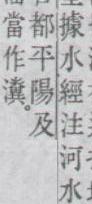 據水經注河水
都平陽及
當作瀵。